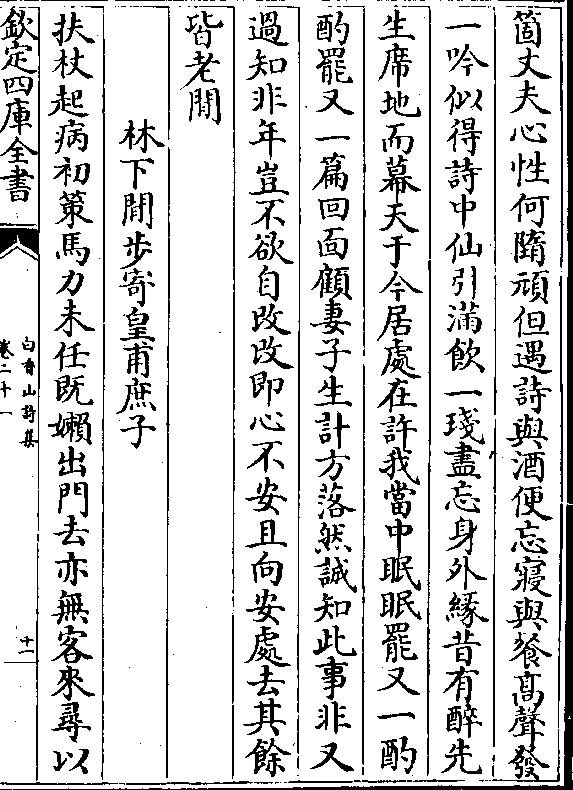 箇丈夫心性何隳頑但遇詩與酒便忘寢與飡髙聲發
一吟似得詩中仙引滿飲一琖盡忘身外緣昔有醉先
生席地而幕天于今居處在許我當中眠眠罷又一酌
酌罷又一篇回面顧妻子生計方落然誠知此事非又
過知非年豈不欲自改改即心不安且向安處去其餘
皆老閒
林下閒步寄皇甫庶子
扶杖起病初策馬力未任既嬾出門去亦無客來尋以
欽定四庫全書
白香山詩集
卷二十一
十一